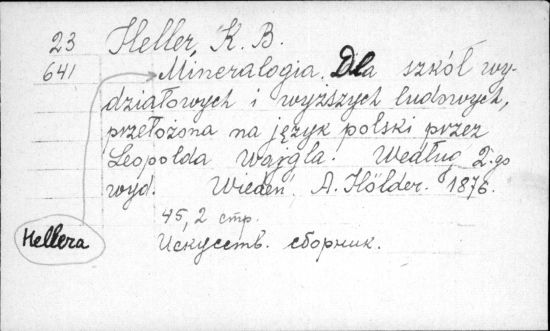 23 Heller, K. B.
641 Mineralogia. Dla szkół wy-
działowych i wyższych ludowych,
przełożona na język polski przez
Leopolda Wajgla. Według 2-go
wyd. Wiedeń, A. Hölder. 1876.
45, 2 стр.
Hellera
Искусств. сборник.